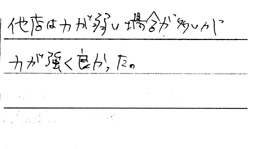 他店は力が弱い場合が多いが
力が強く良かった。